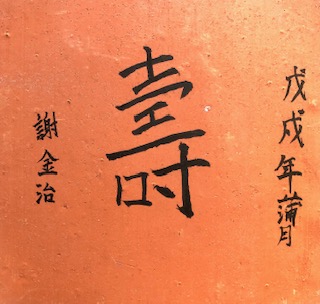 戊戌年蒲月
壽
謝金治